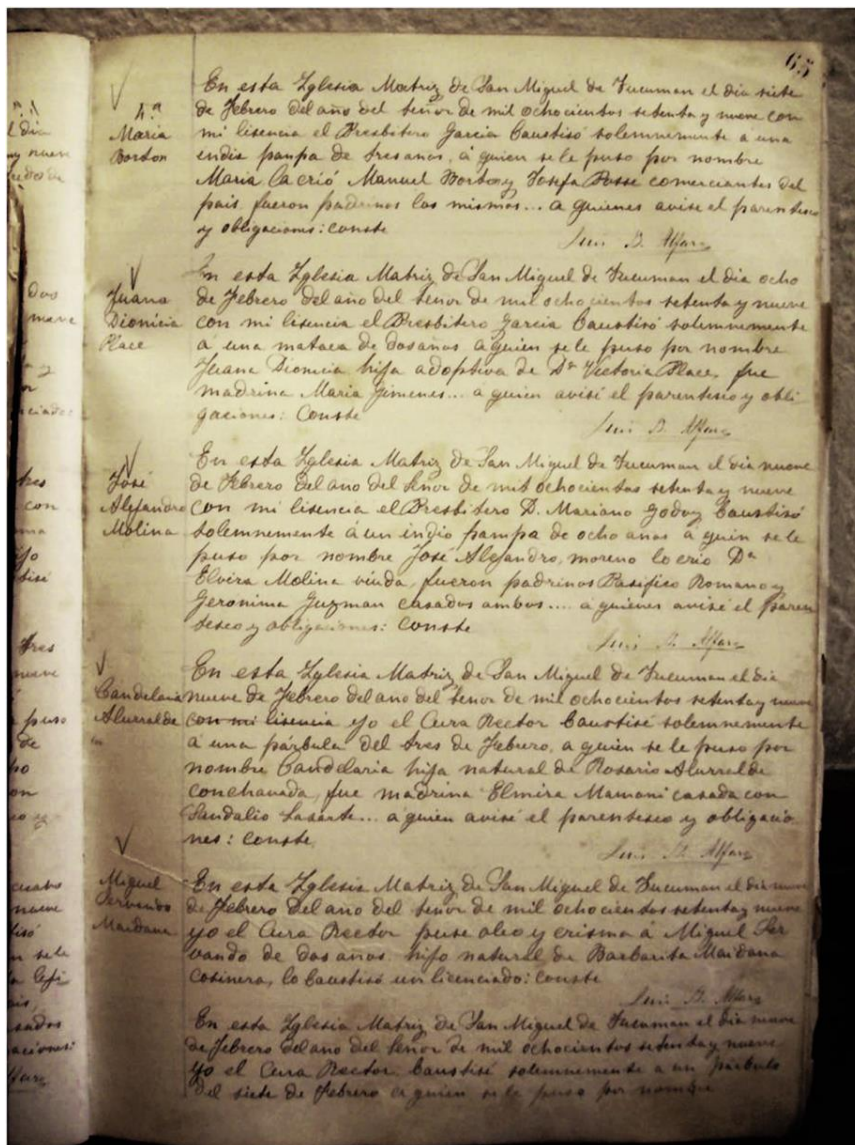 65
4.ª
Maria
Borton
En esta Yglesia Matriz de San Miguel de Tucuman el dia siete
de Febrero del año del señor de mil ochocientos setenta y nueve con
mi lisencia el Presbitero Garcia baustisó solemnemente a una
india panpa de tres anos, á quien se le puso por nombre
Maria la crió Manuel Borton y Josefa Posse comerciantes del
pais fueron padrinos los mismos... a quienes avise el parentesco
y obligaciones: conste
Luis B. Alfaro
Juana
Dionicia
Place
En esta Yglesia Matriz de San Miguel de Tucuman el dia ocho
de Febrero del año del senor de mil ochocientos setenta y nueve
con mi lisencia el Presbitero Garcia baustisó solemnemente
á una mataca de dos años a quien se le puso por nombre
Juana Dionicia hija adoptiva de Dª Victoria Place, fue
madrina Maria Gimenes... a quien avisé el parentesco y obli
gaciones: Conste
Luis B. Alfaro
José
Alejandro
Molina
En esta Yglesia Matriz de San Miguel de Tucuman el dia nueve
de Febrero del ano del señor de mil ochocientos setenta y nueve
con mi lisencia el Presbitero D. Mariano Godoy baustisó
solemnemente á un indio pampa de ocho anos á quin se le
puso por nombre José Alejandro, moreno lo crio Dª
Elvira Molina viuda, fueron padrinos Pasifico Romano y
Geronima Guzman casados ambos.... a quienes avisé el paren
tesco y obligaciones: Conste
Luis B. Alfaro
Candelaria
Alurralde
En esta Yglesia Matriz de San Miguel de Tucuman el dia
nueve de Febrero del ano del senor de mil ochocientos setenta y nueve
con mi lisencia yo el Cura Rector baustisé solemnemente
á una párbula del tres de Febrero, a quien se le puso por
nombre Candelaria hija natural de Rosario Alurralde
conchavada, fue madrina Elmira Mamani casada con
Sandalio Lasarte... a quien avisé el parentesco y obligacio
nes: conste
Luis B. Alfaro
Miguel
Servando
Maidana
En esta Yglesia Matriz de San Miguel de Tucuman el dia nueve
de Febrero del ano del señor de mil ochocientos setenta y nueve
yo el Cura Rector puse oleo y crisma á Miguel Ser
vando de dos anos, hijo natural de Barbarita Maidana
cosinera, lo baustisó un licenciado: conste
Luis B. Alfaro
En esta Yglesia Matriz de San Miguel de Tucuman el dia nueve
de Febrero del ano del Señor de mil ochocientos setenta y nueve
yo el Cura Rector baustisé solemnemente a un párbulo
del siete de Febrero a quien se le puso por nombre